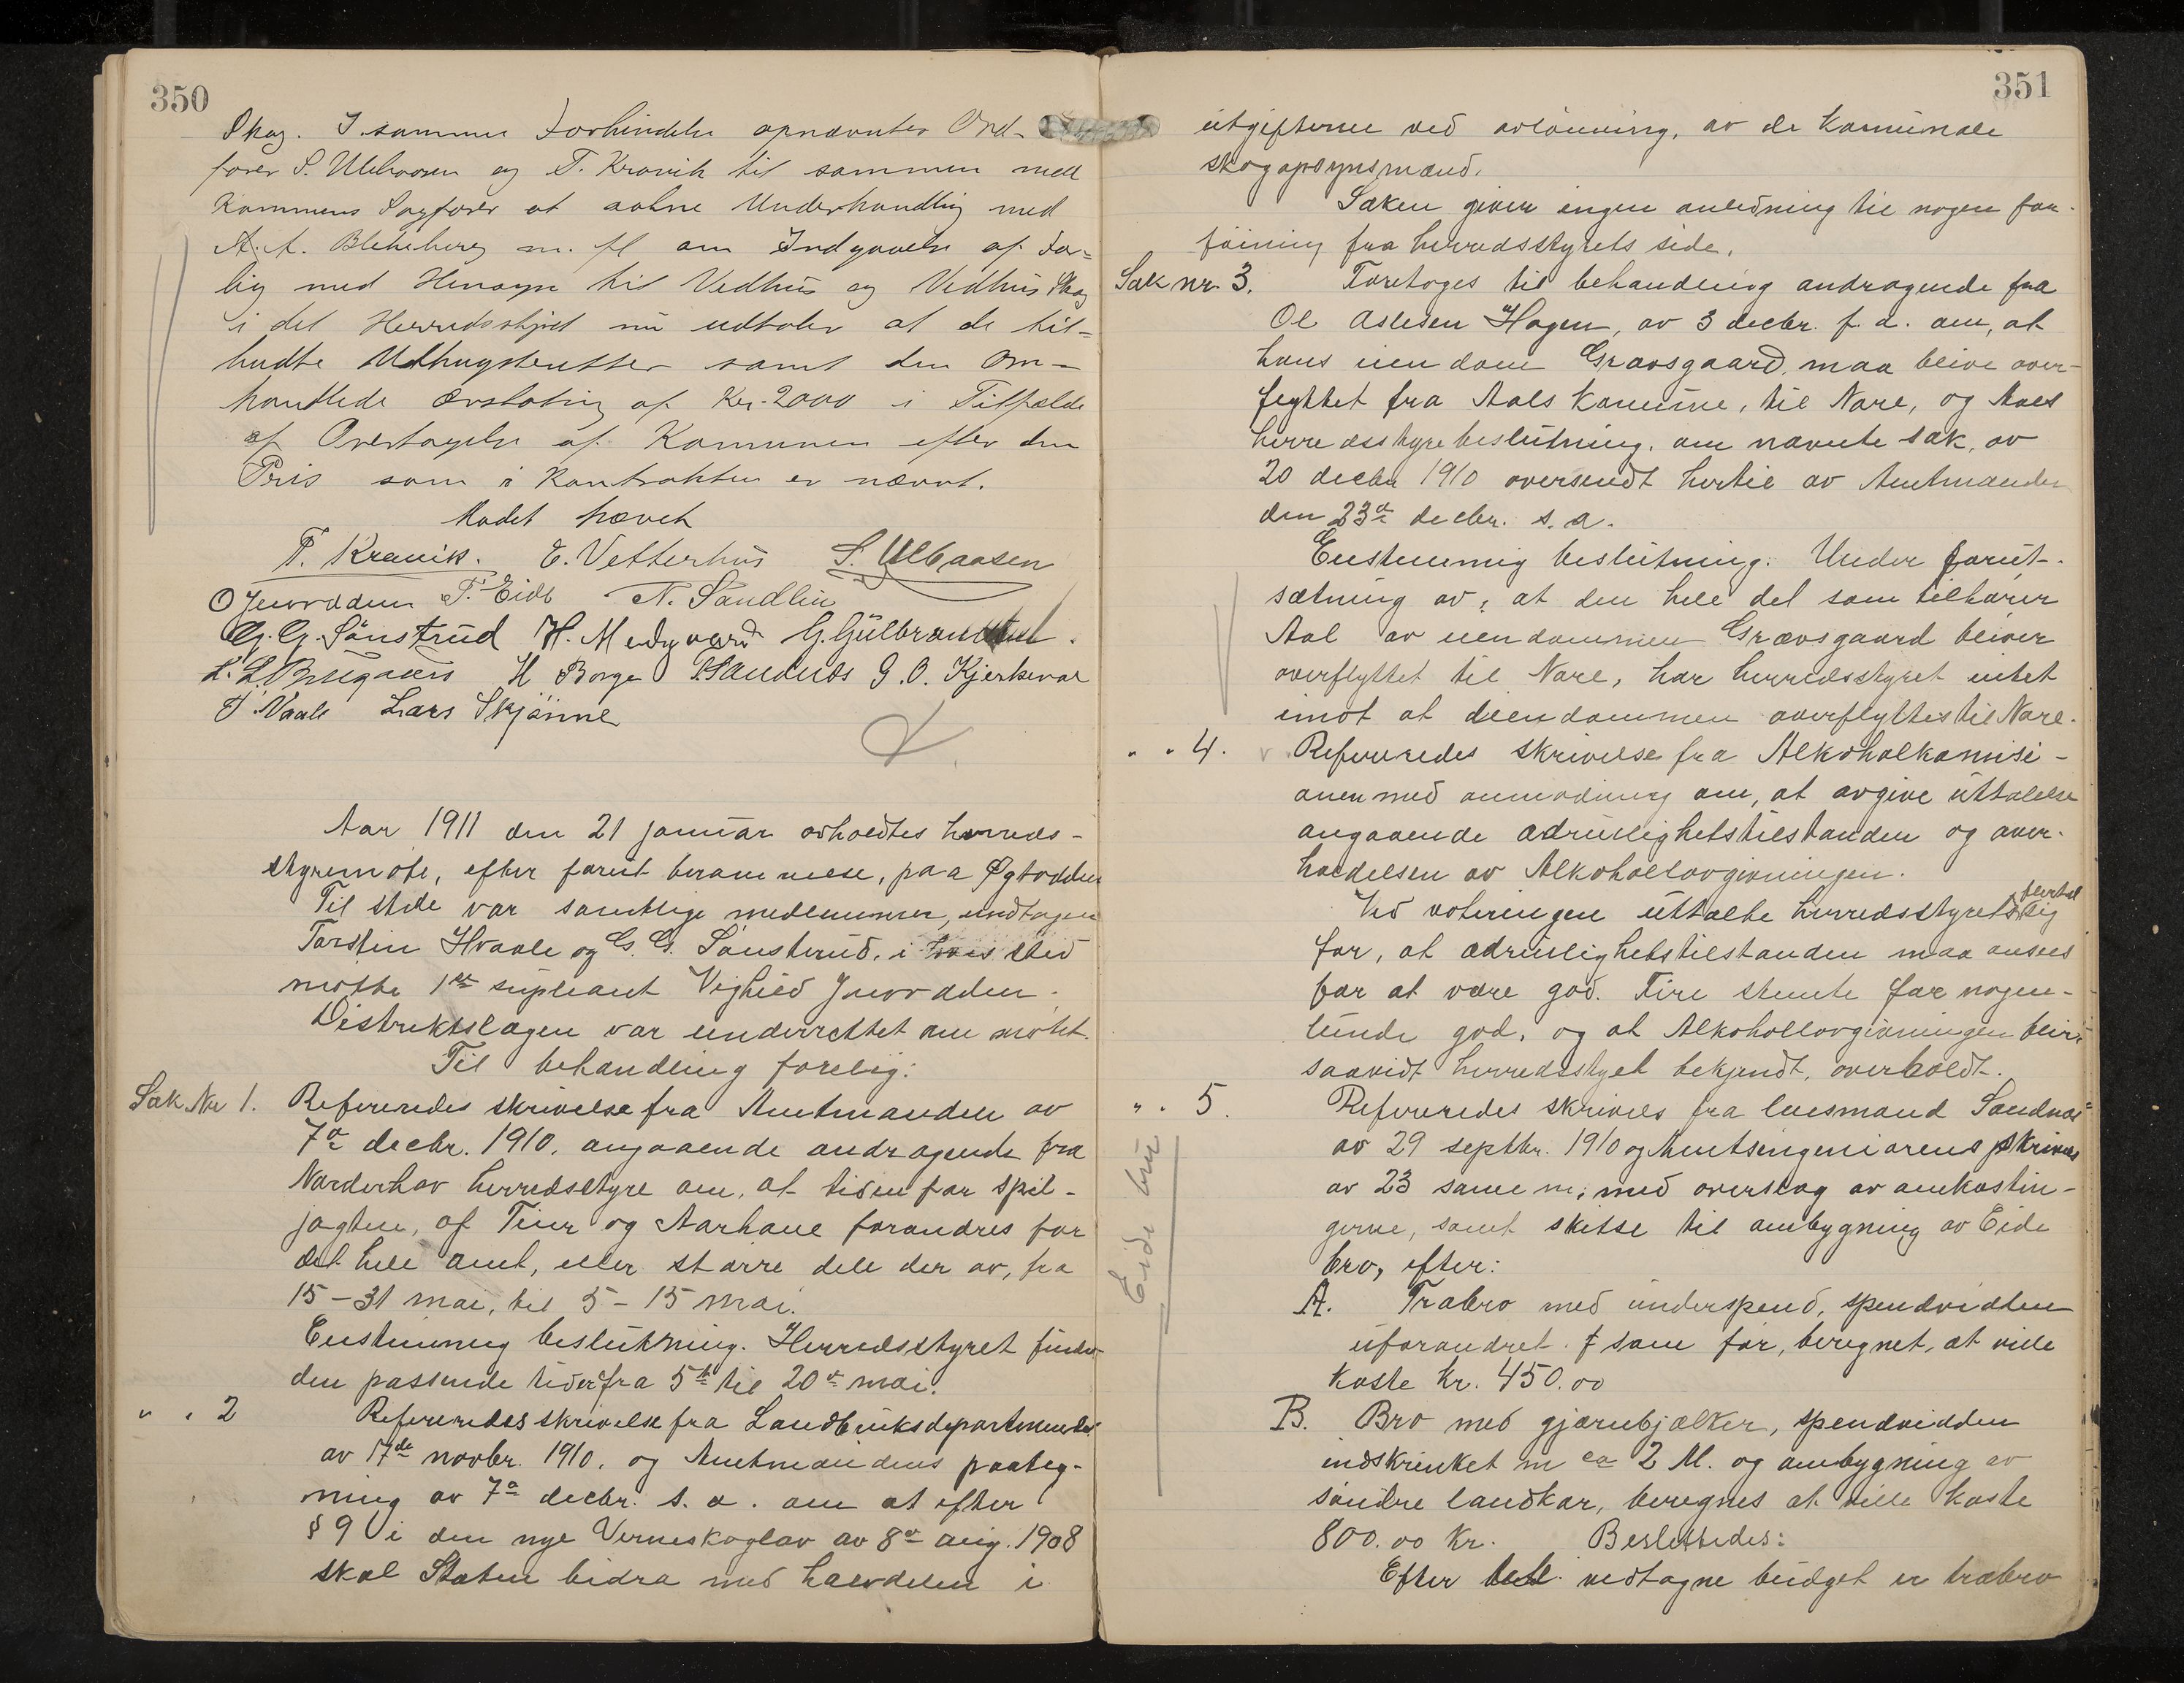 350
Skog. I samme Forbindelse opnævntes Ord-
fører S. Ulebaasen og T. Kravik til sammen med
Kommunens Sagfører at aabne Underhandling med
A. A. Blehiberg m. fl om Indgaaelse af For-
lig med Hensyn til Vedhus og Vedhus Skog
i det Herredsstyret nu udtaler at de til-
budte Udhugstretter samt den Om-
handlede Erstatning af Kr. 2000 i Tilfælde
af Overtagelse af Komunen efter den
Pris som i Kontrakten er nævnt.
Mødet hævet
T. Kravik. E. Vetterhus S. Ulbaasen
O Juvodden T. Eide N. Sandlin
G. G. Sønstrud H. Medgaard G. Gulbrandsen.
H Borge G. O. Kjerkevol
T. Vaale Lars Skjønne
Aar 1911 den 21 januar avholdtes herreds-
styremøte, efter forut berammelse, paa Øgtodden
Til stede var samtlige medlemmer, undtagen
Torstin Hvaale og G. G. Sønsterud, i hvis sted
møtte 1ste supleant Vighlid Juvodden.
Distriktslægen var underrettet om møtet.
Til behandling forelig:
Sak Nr 1. Refereredes skrivelse fra Amtmanden av
7de decbr. 1910. angaaende andragende fra
Norderhov herredsstyre om, at tiden for spil-
jagten, af Tiur og Aarhane forandres for
det hele amt, eller større dele der av, fra
15 - 31 mai, til 5 - 15 mai.
Enstemmig beslutning. Herredsstyret finder
den passende tiden fra 5te til 20de mai.
" " 2 Refereredes skrivelse fra Landbruksdepartementet
av 17de novbr. 1910. og Amtmandens paateg-
ning av 7de decbr. s. a. om at efter
§ 9 i den nye Verneskoglov av 8de aug. 1908
skal Staten bidra med halvdelen i
351
utgifterne ved avlønning, av de komunale
skogopsynsmænd.
Saken giver ingen anledning til nogen for-
føining fra herredsstyrets side.
Sak nr. 3. Foretoges til behandling andragende fra
Ol Aslesen Hagen, av 3 decbr. f. a. om, at
hans eiendom Gravsgaard, maa blive over-
flyttet fra Aals komune, til Nore, og Aals
herredsstyrebeslutning, om nævnte sak, av
20 decbr 1910 oversendt hertil av Amtmanden
den 23de decbr. s. a.
Enstemmig beslutning: Under forut-
sætning av, at den hele del som tilhører
Aal av eiendommen Grævsgaard bliver
overflyttet til Nore, har herredsstyret intet
imot at eiendommen overflyttes til Nore.
" " 4. Refereredes skrivelse fra Alkoholkomisi-
onen med anmodning om, at avgive uttalelse
angaaende ædruelighetstilstanden og over-
holdelsen av Alkohollovgivningen.
Ved voteringen uttalte herredsstyrets flertal sig
for, at ædruelighetstilstanden maa ansees
for at være god. Fire stemte for nogen-
lunde god, og at Alkohollovgivningen blir,
saavidt herredsstyret bekjendt, overholdt.
" " 5. Refereredes skrivels fra lensmand Sandnes
av 29 septbr. 1910 og Amtsingeniørens skrivels
av 23 same m; med overslag av omkostnin-
gerne, samt skitse til ombygning av Eide
bro, efter:
Eide bru
A. Træbro med underspend, spendvidden
uforandret som før, beregnet, at ville
koste Kr. 450.00
B. Bro med gjærnbjælker, spendvidden
indskrænket m ca 2 M. og ombygning av
søndre landkar, beregnes at ville koste
800.00 Kr. Besluttedes:
Efter vedtagne budget er træbro